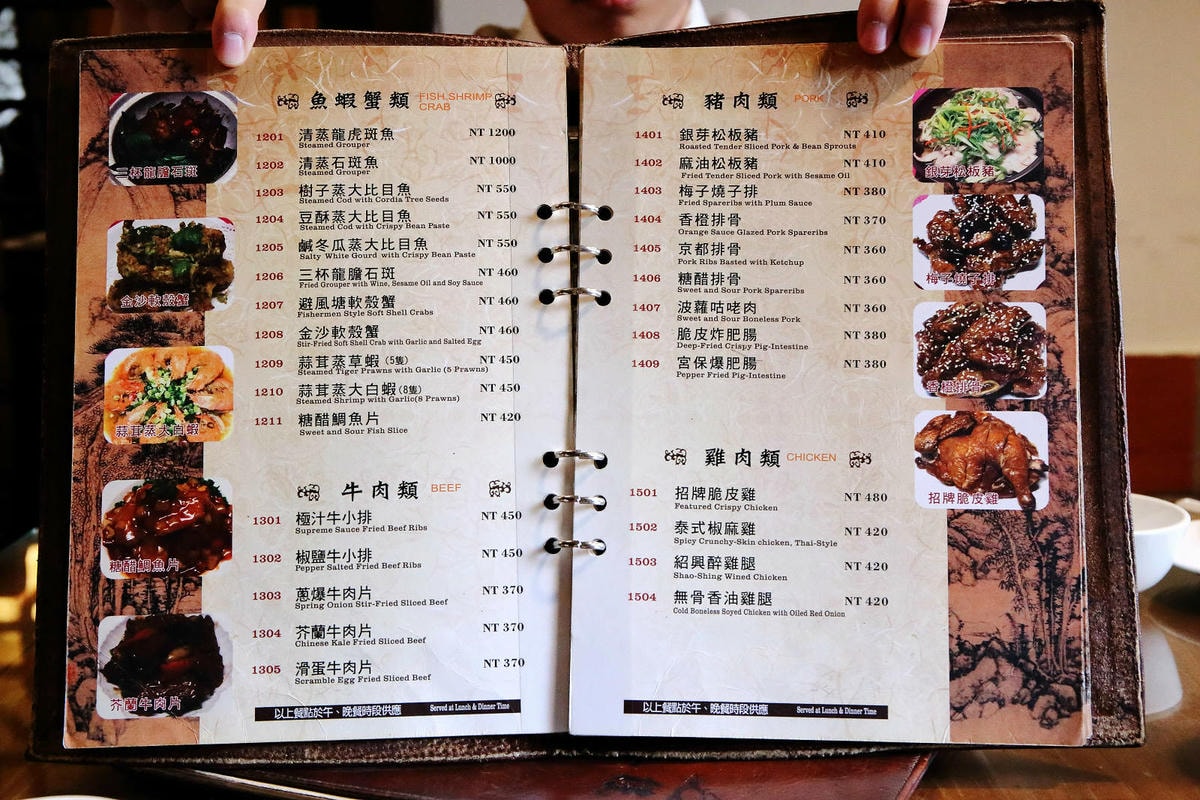 魚蝦蟹類 FISH,SHRIMP
CRAB
1201 清蒸龍虎斑魚 NT 1200
Steamed Grouper
1202 清蒸石斑魚 NT 1000
Steamed Grouper
1203 樹子蒸大比目魚 NT 550
Steamed Cod with Cordia Tree Seeds
1204 豆酥蒸大比目魚 NT 550
Steamed Cod with Crispy Bean Paste
1205 鹹冬瓜蒸大比目魚 NT 550
Salty White Gourd with Crispy Bean Paste
1206 三杯龍膽石斑 NT 460
Fried Grouper with Wine, Sesame Oil and Soy Sauce
1207 避風塘軟殼蟹 NT 460
Fishermen Style Soft Shell Crabs
1208 金沙軟殼蟹 NT 460
Stir-Fried Soft Shell Crab with Garlic and Salted Egg
1209 蒜茸蒸草蝦(5隻) NT 450
Steamed Tiger Prawns with Garlic (5 Prawns)
1210 蒜茸蒸大白蝦(8隻) NT 450
Steamed Shrimp with Garlic(8 Prawns)
1211 糖醋鯛魚片 NT 420
Sweet and Sour Fish Slice
牛肉類 BEEF
1301 極汁牛小排 NT 450
Supreme Sauce Fried Beef Ribs
1302 椒鹽牛小排 NT 450
Pepper Salted Fried Beef Ribs
1303 蔥爆牛肉片 NT 370
Spring Onion Stir-Fried Sliced Beef
1304 芥蘭牛肉片 NT 370
Chinese Kale Fried Sliced Beef
1305 滑蛋牛肉片 NT 370
Scramble Egg Fried Sliced Beef
以上餐點於午、晚餐時段供應 Served at Lunch & Dinner Time
三杯龍膽石斑
金沙軟殼蟹
蒜茸蒸大白蝦
糖醋鯛魚片
芥蘭牛肉片
豬肉類 PORK
1401 銀芽松板豬 NT 410
Roasted Tender Sliced Pork & Bean Sprouts
1402 麻油松板豬 NT 410
Fried Tender Sliced Pork with Sesame Oil
1403 梅子燒子排 NT 380
Fried Spareribs with Plum Sauce
1404 香橙排骨 NT 370
Orange Sauce Glazed Pork Spareribs
1405 京都排骨 NT 360
Pork Ribs Basted with Ketchup
1406 糖醋排骨 NT 360
Sweet and Sour Pork Spareribs
1407 波蘿咕咾肉 NT 360
Sweet and Sour Boneless Pork
1408 脆皮炸肥腸 NT 380
Deep-Fried Crispy Pig-Intestine
1409 宮保爆肥腸 NT 380
Pepper Fried Pig-Intestine
雞肉類 CHICKEN
1501 招牌脆皮雞 NT 480
Featured Crispy Chicken
1502 泰式椒麻雞 NT 420
Spicy Crunchy-Skin chicken, Thai-Style
1503 紹興醉雞腿 NT 420
Shao-Shing Wined Chicken
1504 無骨香油雞腿 NT 420
Cold Boneless Soyed Chicken with Oiled Red Onion
以上餐點於午、晚餐時段供應 Served at Lunch & Dinner Time
銀芽松板豬
梅子燒子排
香橙排骨
招牌脆皮雞